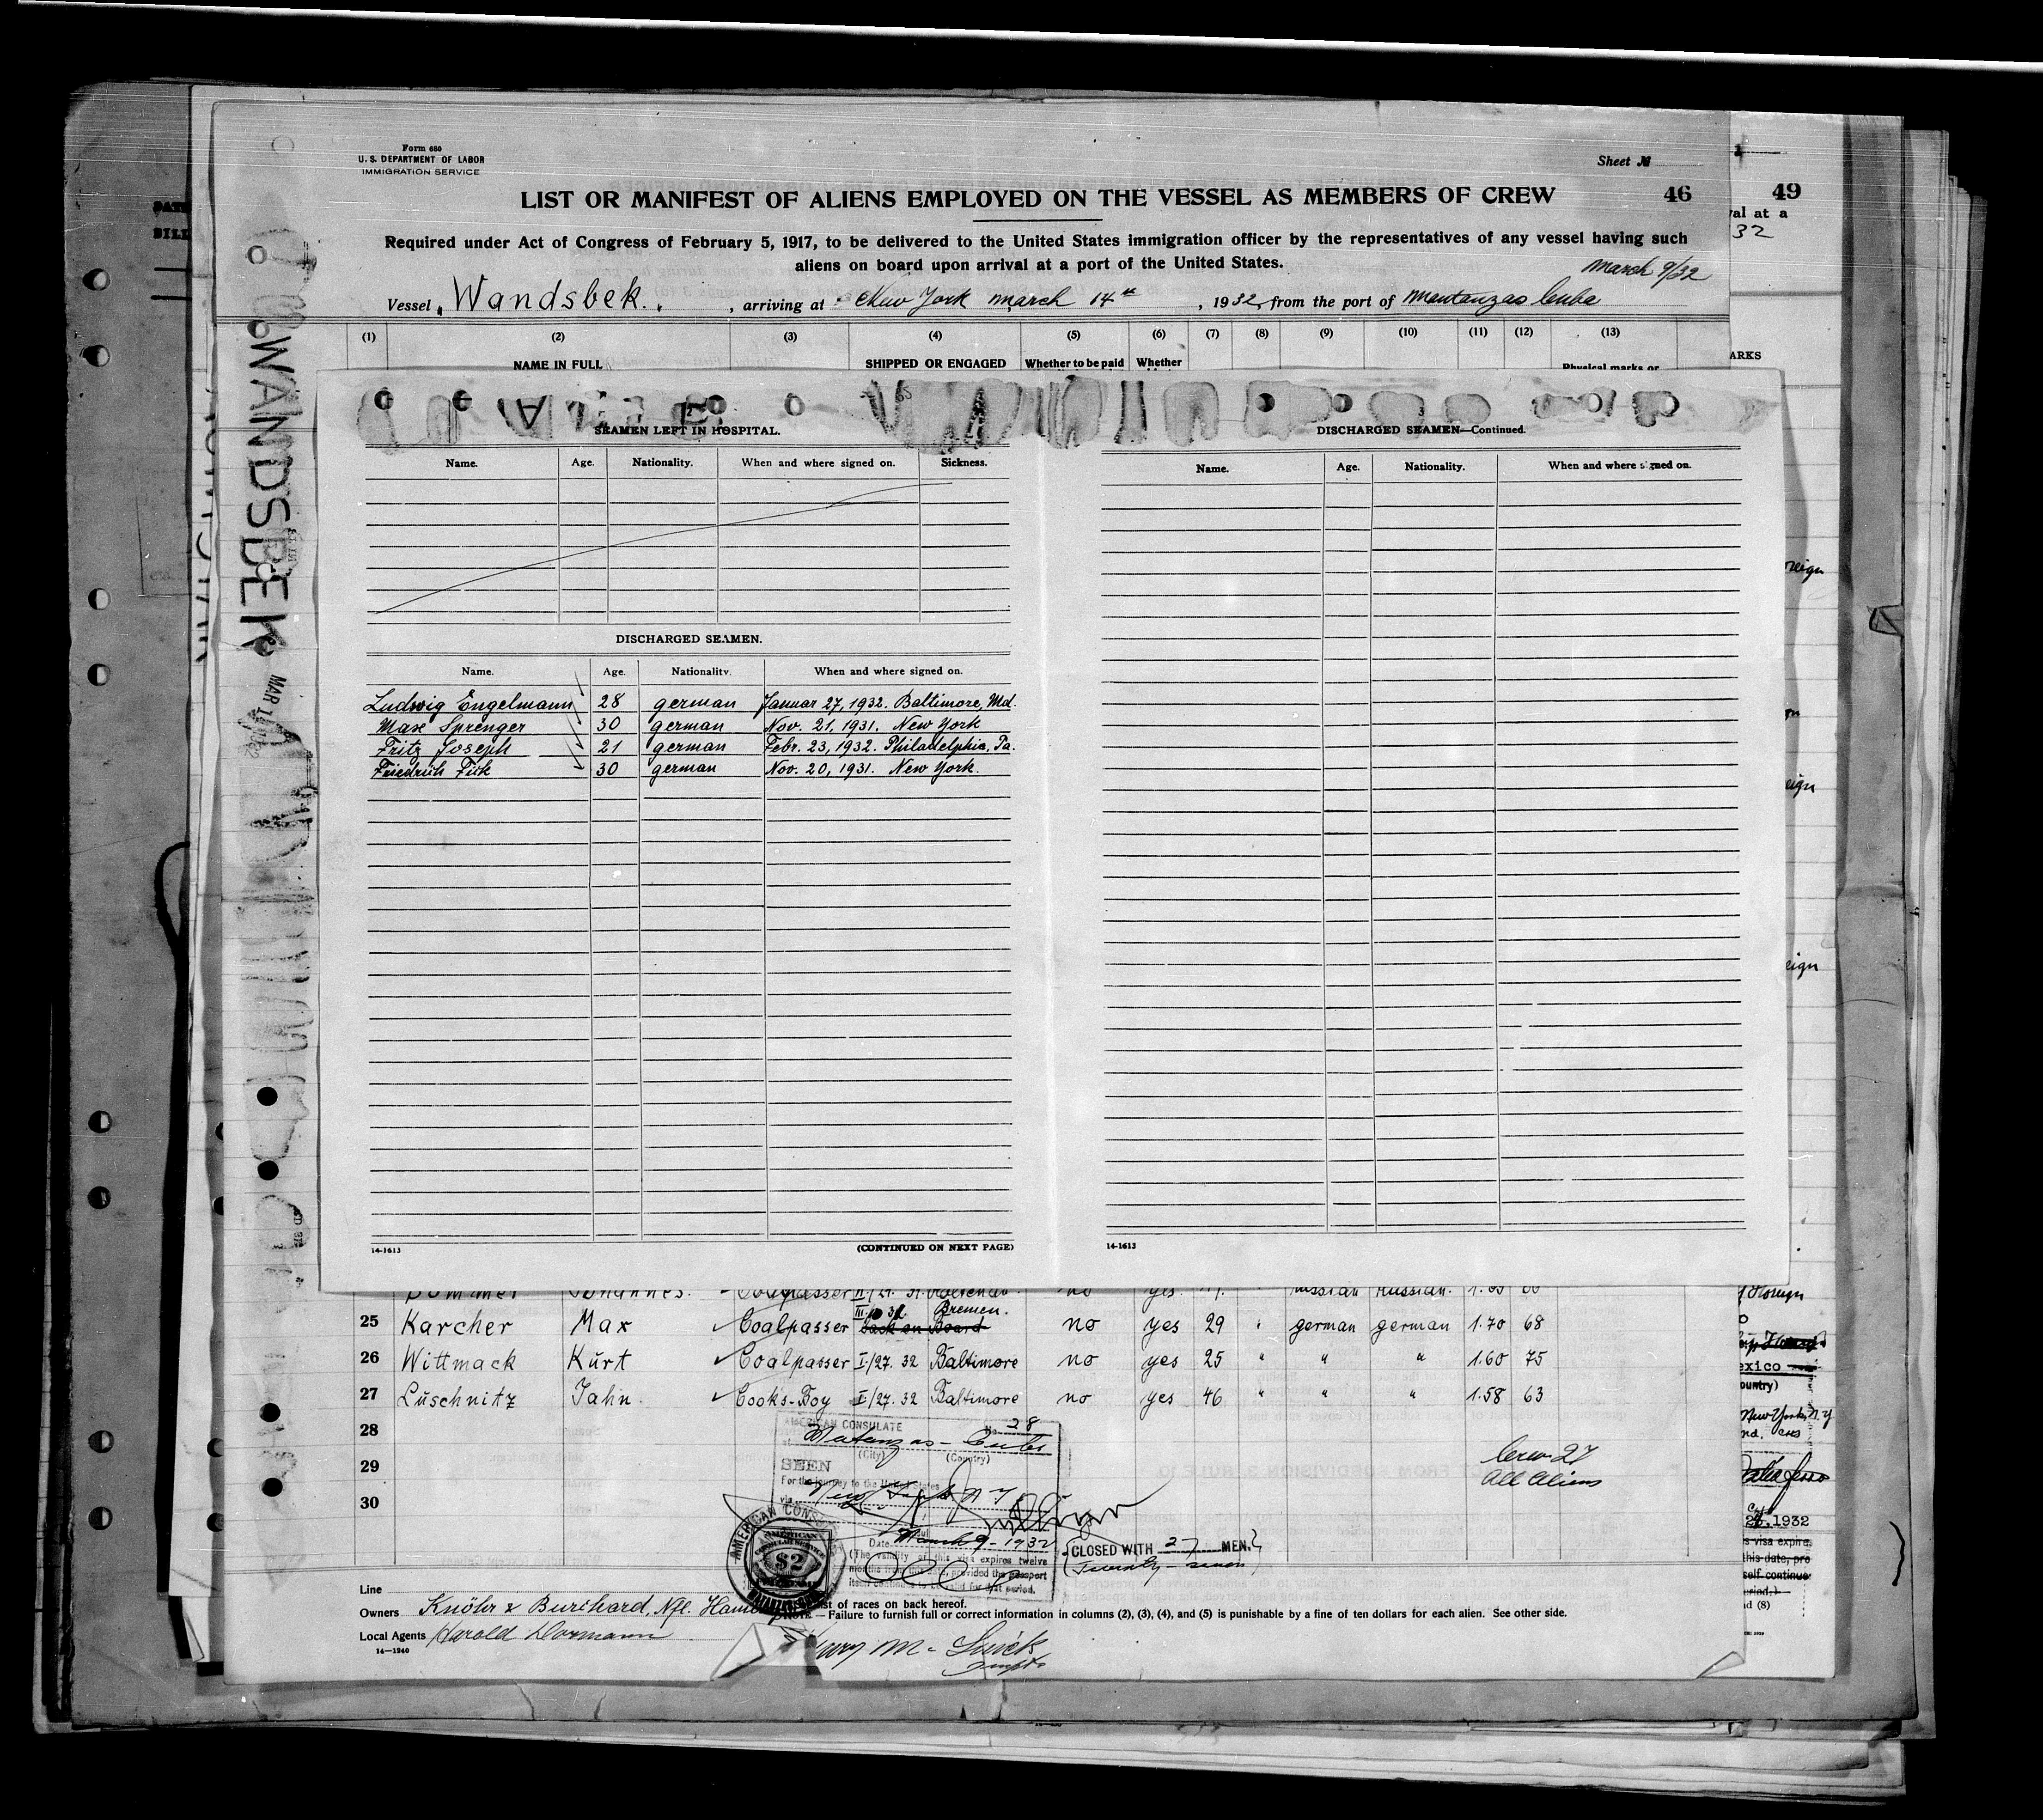 Form 680
U. S. DEPARTMENT OF LABOR
IMMIGRATION SERVICE
Sheet №
LIST OR MANIFEST OF ALIENS EMPLOYED ON THE VESSEL AS MEMBERS OF CREW
46
49
Required under Act of Congress of February 5, 1917, to be delivered to the United States immigration officer by the representatives of any vessel having such
aliens on board upon arrival at a port of the United States.
val at a
32
March 9/32
Vessel „Wandsbek.", arriving at New York March 14th, 1932, from the port of Mantanzas Cuba
(1) (2) (3) (4) (5) (6) (7) (8) (9) (10) (11) (12) (13)
NAME IN FULL SHIPPED OR ENGAGED Whether to be paid Whether Physical marks or
ARKS
WANDSBEK
2
SEAMEN LEFT IN HOSPITAL.
Name. Age. Nationality. When and where signed on. Sickness.
DISCHARGED SEAMEN.
Name. Age. Nationality. When and where signed on.
Ludwig Engelmann 28 german Januar 27, 1932. Baltimore, Md.
Max Sprenger 30 german Nov. 21, 1931. New York
Fritz Joseph 21 german Febr. 23, 1932. Philadelphia, Pa.
Friedrich Fick 30 german Nov. 20, 1931. New York.
14-1613 (CONTINUED ON NEXT PAGE)
3
DISCHARGED SEAMEN—Continued.
Name. Age. Nationality. When and where signed on.
14-1613
Sommer Johannes. Coalpasser no yes russian russian.
25 Karcher Max Coalpasser Bremen. back on Board no yes 29 german german 1.70 68
26 Wittmack Kurt Coalpasser I/27. 32 Baltimore no yes 25 " " " 1.60 75
27 Luschnitz Jahn. Cooks-Boy I/27. 32 Baltimore no yes 46 " " " 1.58 63
28
29
30
AMERICAN CONSULATE
No. 28
Matanzas - Cuba
(City) (Country)
SEEN
For the journey to the United States
via
New York N Y
Date March 9 - 1932
(The validity of this visa expires twelve
months from this date, provided the passport
AMERICAN
$2
Crew 27
All Aliens
CLOSED WITH 27 MEN.
Twenty-seven
Line
Owners Knöhr & Burchard, Nfl.
list of races on back hereof.
NOTE.—Failure to furnish full or correct information in columns (2), (3), (4), and (5) is punishable by a fine of ten dollars for each alien. See other side.
Local Agents Harold Dormann
14—1240
exico
ountry)
New York, N.Y
1932
s visa expire
this date, pro
self continue
eriod.)
nd (8)